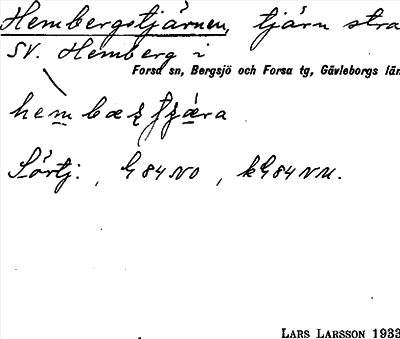 Hembergstjärnen, tjärn stra
SV. Hemberg i
Forsa sn, Bergsjö och Forsa tg, Gävleborgs län
Sörtj: , G84NO , kG84NM.
LARS LARSSON 1933